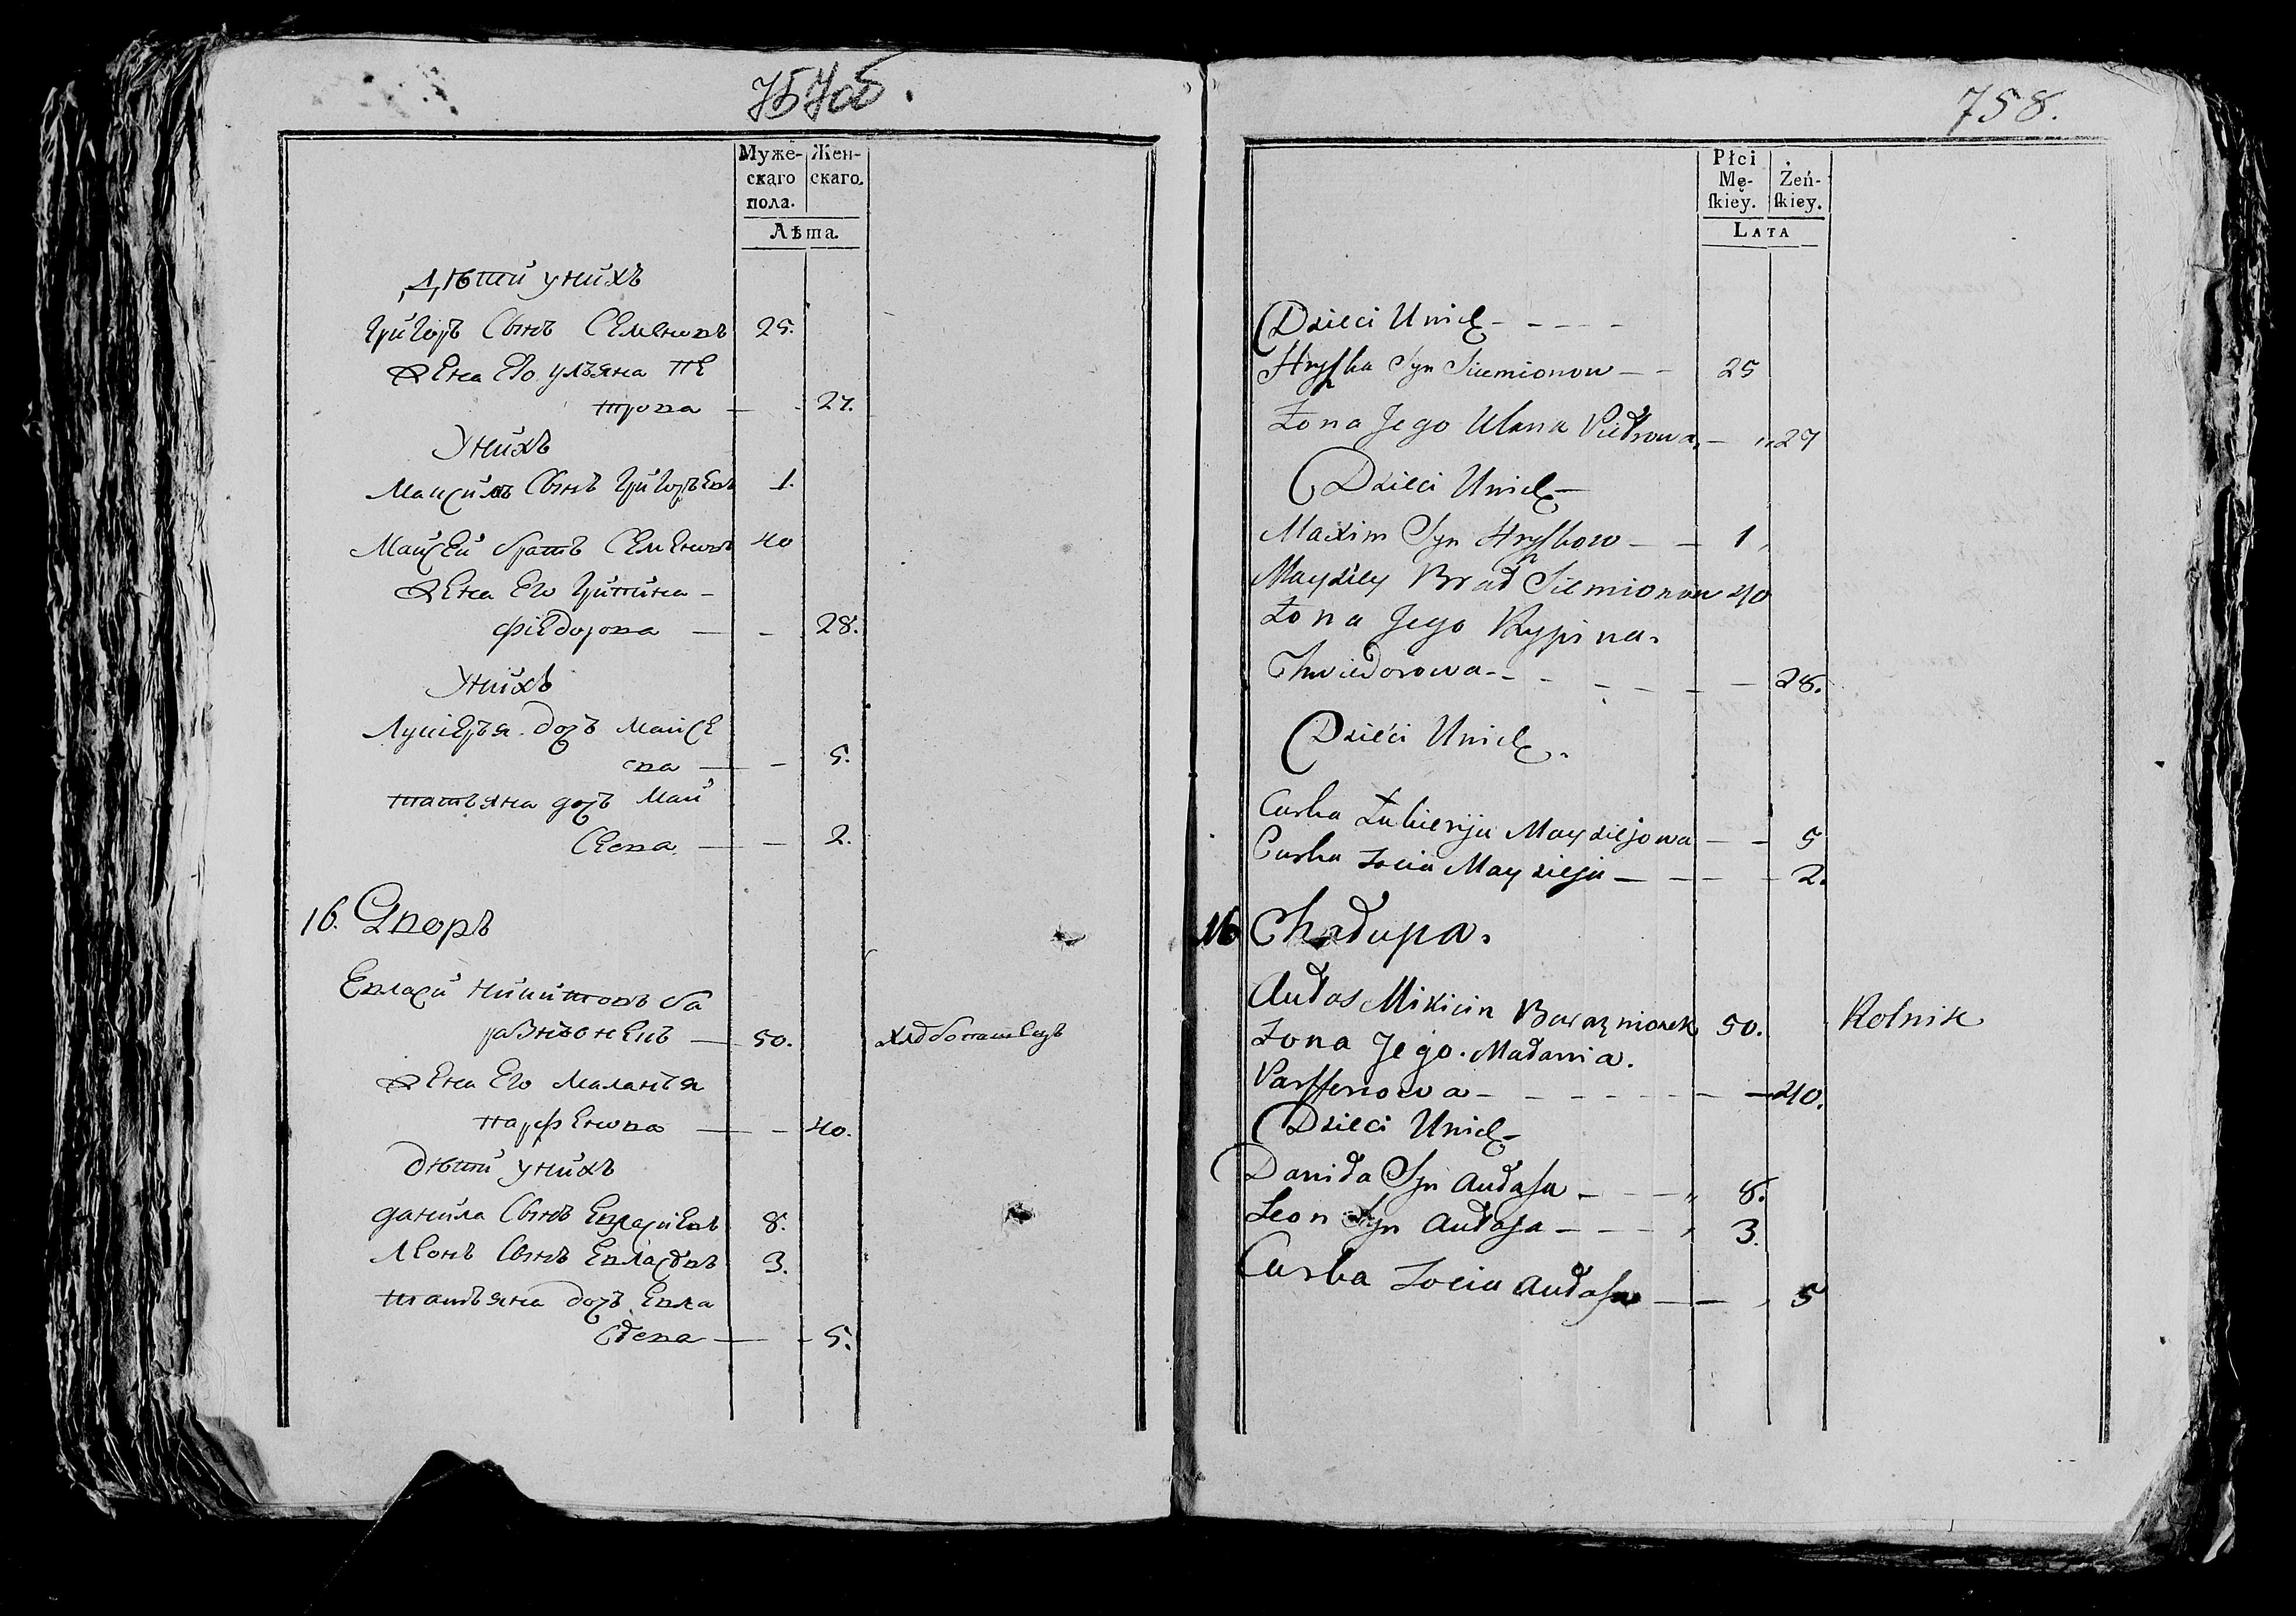 757об.
Муже-
скаго
пола.
Жен-
скаго.
Лѣта.
Дѣти у нихъ
Григоръ Сынъ Семеновъ 25.
Жена Его Ульяна Пе
трова — 27.
У нихъ
Максимъ Сынъ Григорьевъ 1.
Майсей братъ Семеновъ 40
Жена Его Грипина -
Фіедорова — - 28.
У нихъ
Лукіерья дочъ Майсе
ева — - 5.
Татьяна дочъ Май
Сеева — — 2.
16. Дворъ
Евласй Никитовъ ба
разнѣонекъ — 50.
Жена Его Маланья
Парфенова — - 40.
Дѣти у нихъ
Данила Сынъ Евласиевъ 8.
Леонъ Сынъ Евласовъ 3.
Татьяна дочъ Евла
сова — - 5.
758.
Płci
Mę-
ſkiey.
Żeń-
ſkiey.
LATA
Dzieci Unich - - - - -
Hryſhka Syn Siemionow — - 25
Żona Jego Ulana Pietrowa, — „27
Dzieci Unich —
Maxim Syn Hryſhkow — — 1,
Mayziey Brat Siemionow 40
Żona Jego Krypina.
Chwiedorowa - - - - — — 28.
Dzieci Unich.
Curka Łukierija Mayziejowa — - 5
Curka Tocia Mayzieja — — — - 2.
16 Chałupa.
Aułas Mikicin Baraznionek 50. Rolnik
Żona Jego. Małania.
Parffenowa - - - - - - — —40.
Dzieci Unich -
Daniła Syn Aułaſa - - — „ 8.
Leon Syn Aułaſa — - — , 3.
Curka Tocia Aułaſa — — , 5